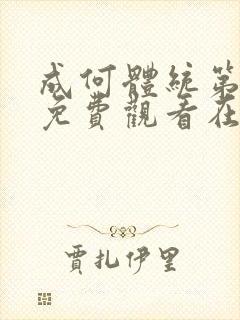 成何體統第
免費觀看在
賈扎伊里